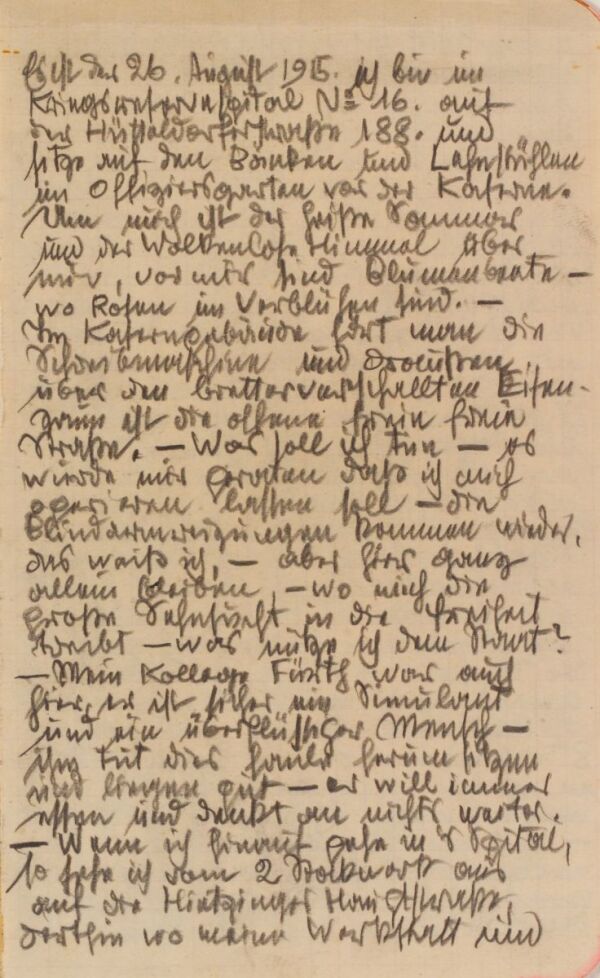 Es ist der 26. August 1915. ich bin im
Kriegsreservespital No 16. auf
der Hütteldorferstraße 188. und
sitze auf den Bänken und Lehnstühlen
im Offiziersgarten vor der Kaserne.
Um mich ist der heiße Sommer
und der Wolkenlose Himmel über
mir, vor mir sind Blumenbeete –
wo Rosen im Verblühen sind. –
Im Kaserngebäude hört man die
Schreibmaschine und draußen
über den bretterverschallten Eisen-
zaun ist die offene freie freie
Straße. – Was soll ich tun – es
wurde mir geraten daß ich mich
operieren lassen soll – die
Blinddarmreizungen kommen wieder,
das weiß ich, – aber hier ganz
allein bleiben, – wo mich die
große Sehnsucht in die Freiheit
treibt – was nütze ich dem Staat?
– Mein Kollege Fürth war auch
hier, er ist sicher ein Simulant
und ein überflüssiger Mensch –
ihm tut dies faule herum sitzen
und liegen gut – er will immer
essen und denkt an nichts weiter.
– Wenn ich hinauf gehe in's Spital,
so sehe ich vom 2 Stockwerk aus
auf die Hietzinger Hauptstraße,
dorthin wo meine Werkstatt und